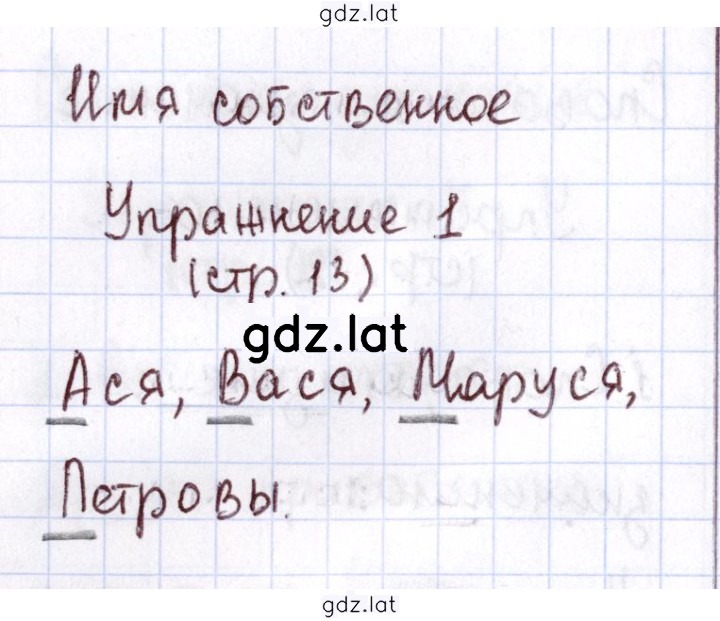 gdz.lat
Имя собственное
Упражнение 1
(стр. 13)
gdz.lat
Ася, Вася, Маруся,
Петровы.
gdz.lat